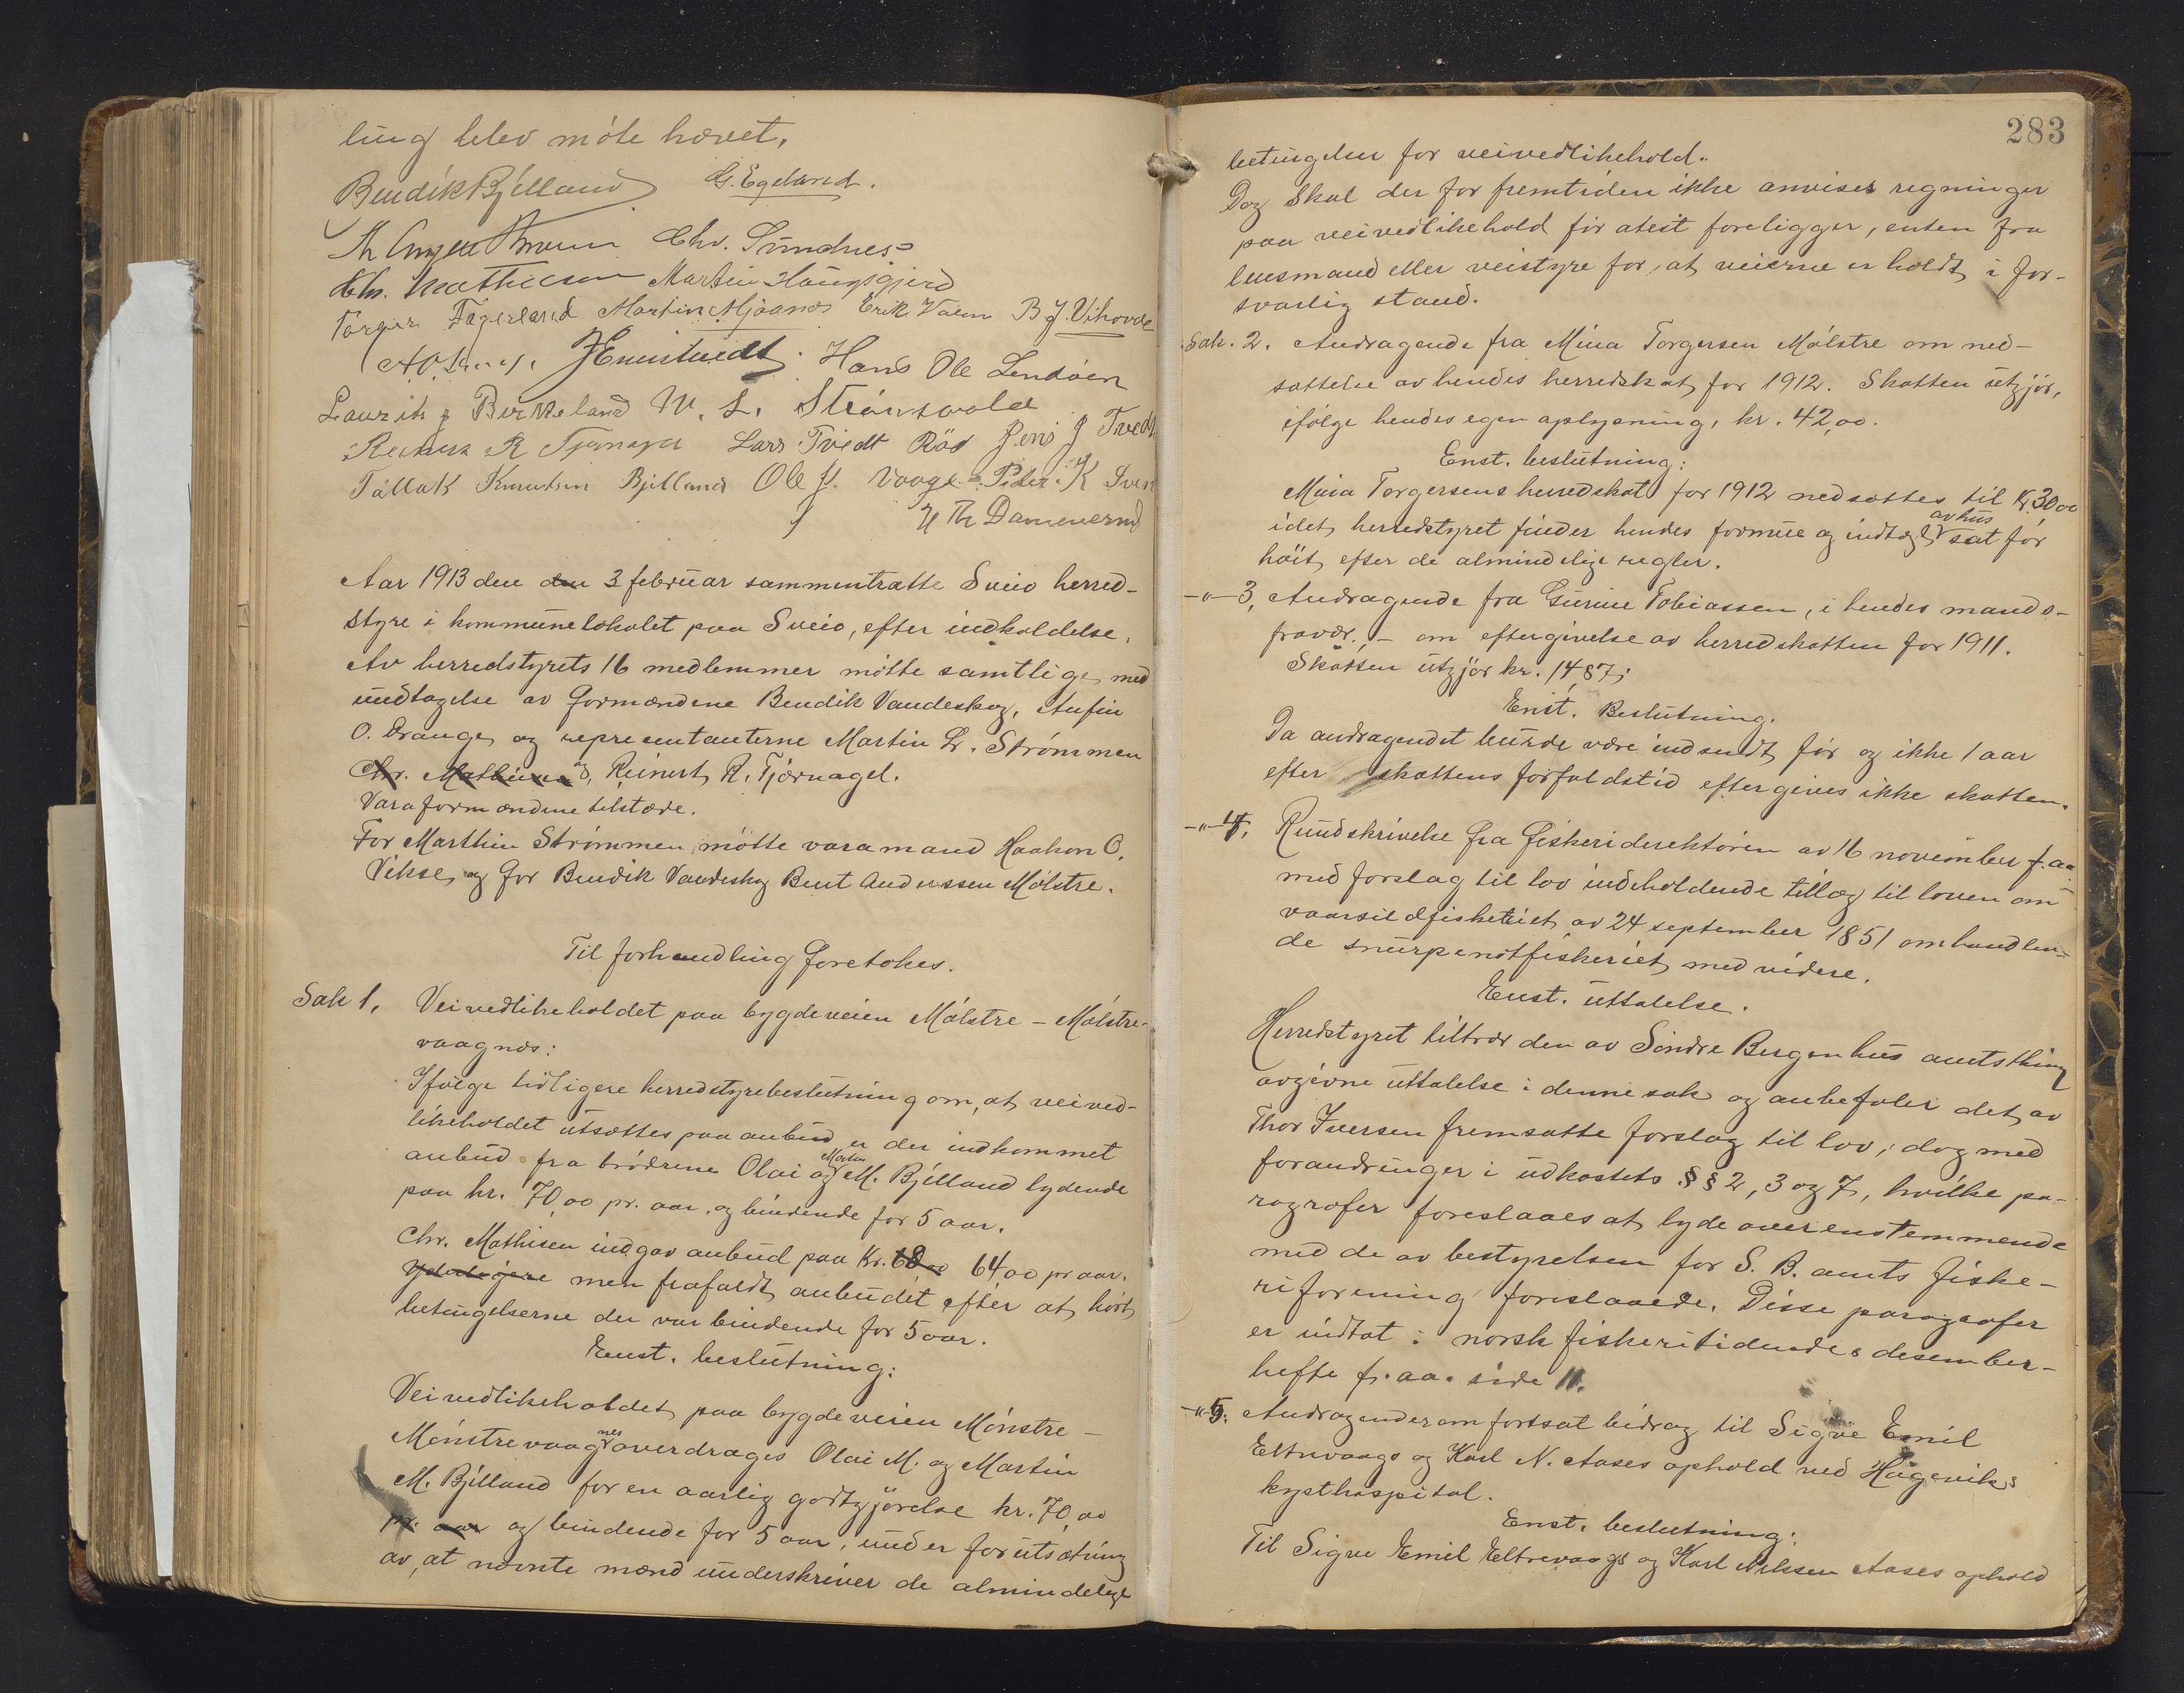 ling blev møte hævet.
Bendik Bjelland G. Egeland.
Chr. Sundnes
Chr. Mathiesen Martin Haugsgjerd
Torger Fagerland Martin Mjaanes Erik Valen B J. Vihovde
Hans Ole Lendøen
Laurits J Birkeland W. L. Strømsvold
R Lars Tvedt Rød Jens J Tvedt
Tallak Knudsen Bjelland Ole J. Vaage Peder K Sven
Aar 1913 den den 3 februar sammentraatte Sveio herred-
styre i kommunelokalet paa Sveio, efter indkaldelse.
Av herredstyrets 16 medlemmer møtte samtlige, med
undtagelse av formændene Bendik Vandeskog, Anfin
O. Drange, og representanterne Martin L. Strømmen
Chr. Mathiesen og, Reinert R. Tjernagel.
Varaformændene tilstæde.
For Marthin Strømmen møtte varamand Haakon O.
Vikse, og for Bendik Vandeskog Bent Anderssen Mølstre.
Til forhandling foretokes.
Sak 1. Veivedlikeholdet paa bygdeveien Mølstre – Mølstre-
vaagnes:
Ifølge tidligere herredstyrebeslutning om, at veived-
likeholdet utsættes paa anbud, er der indkommet
anbud fra brødrene Olai og Martin M. Bjelland lydende
paa kr. 70,00 pr. aar, og bindende for 5 aar.
Chr. Mathisen indgav anbud paa Kr. 68 00 64 00 pr aar.
Yderligere men frafaldt anbudet efter at hørt
betingelserne der var bindende for 5 aar.
Enst. beslutning:
Veivedlikeholdet paa bygdeveien Mønstre –
Mønstrevaagnes overdrages Olai M. og Martin
M. Bjelland for en aarlig godtgjørelse kr. 70,00
pr. aar og bindende for 5 aar, under forutsætning
av, at nævnte mænd underskriver de almindelige
283
betingelser for veivedlikehold.
Dog skal der for fremtiden ikke anvises regninger
paa veivedlikehold før atest foreligger, enten fra
lensmand eller veistyre for, at veierne er holdt i for-
svarlig stand.
Sak. 2. Andragende fra Mina Torgersen Mølstre om ned-
sættelse av hendes herredskat for 1912. Skatten utgjør,
ifølge hendes egen oplysning, kr. 42,00.
Enst. beslutning:
Mina Torgersens herredskat for 1912 nedsættes til Kr 30 00
idet herredstyret finder hendes formue og indtægt av hus sat for
høit, efter de almindelige regler.
–"– 3, Andragende fra Gurine Tobiassen, i hendes mands-
fravær. – om eftergivelse av herredskatten for 1911.
Skatten utgjør kr. 14,87.
Enst. Beslutning.
Da andragendet burde være indsendt før og ikke 1 aar
efter skattens forfaldstid eftergives ikke skatten.
–"– 4, Rundskrivelse fra fiskeridirektøren av 16 november f. aa
med forslag til lov indeholdende tillæg til loven om
vaarsildfisketeriet av 24 september 1851 omhandlen-
de snurpenotfiskeriet med videre.
Enst. uttalelse.
Herredstyret tiltrær den av Søndre Bergenhus amtsthing
avgivne uttalelse i denne sak og anbefaler det av
Thor Iversen fremsatte forslag til lov, dog med
forandringer i udkastets §§ 2, 3 og 7, hvilke pa-
ragrafer foreslaaes at lyde overenstemmende
med de av bestyrelsen for S. B. amts fiske-
riforening foreslaaede. Disse paragrafer
er indtat i norsk fiskeritidende desember-
hefte f. aa. side 11.
–"– 5. Andragender om fortsat bidrag til Sigve Emil
Eltrevaags og Karl N. Aases ophold ved Hagevik's
kysthospital.
Enst. beslutning:
Til Sigve Emil Eltrevaags og Karl Nilssen Aases ophold